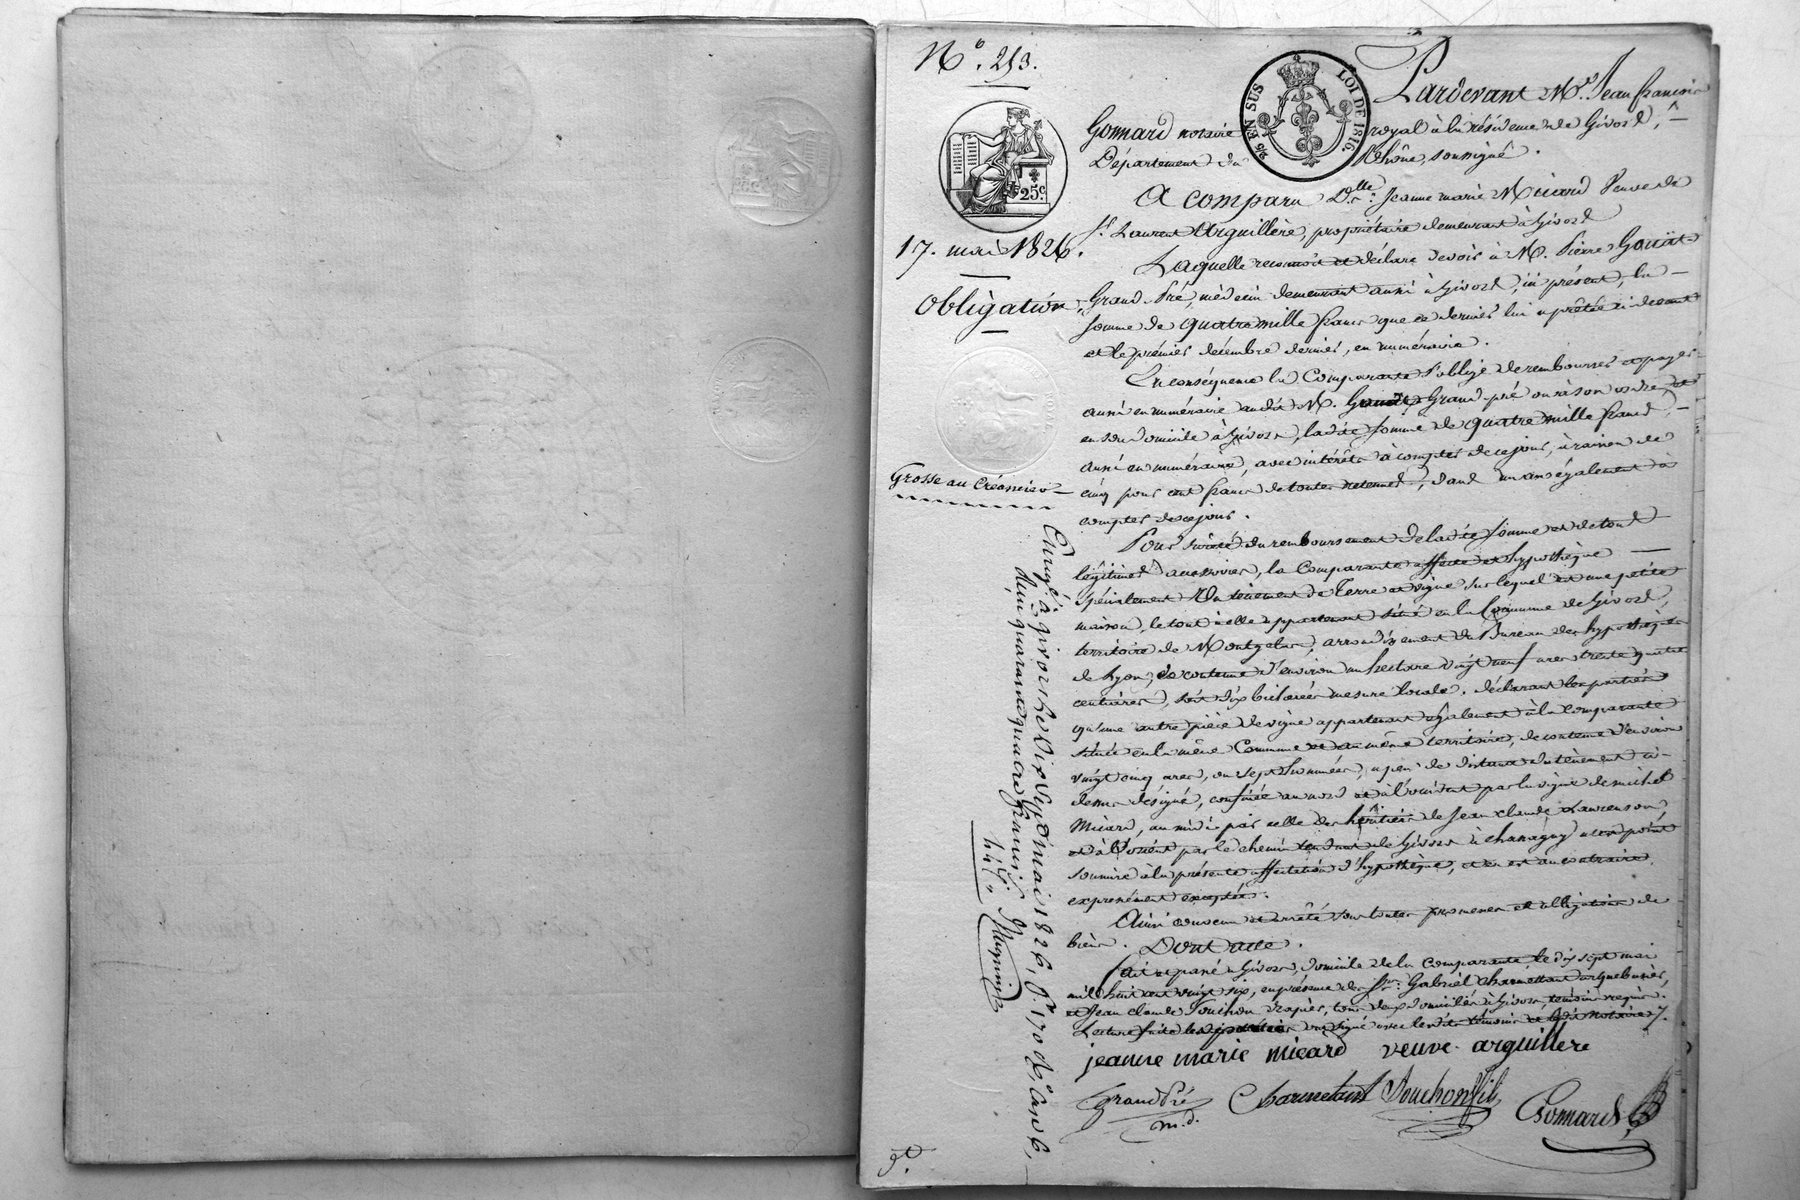 N.o 253.
25.c
17. mai 1826.
Obligation
Grosse au Créancier
2/5 EN SUS
LOI DE 1816.
Pardevant M.e Jean françois
Gonnard notaire royal à la résidence de Givors,
Département du Rhône, soussigné.
A comparu D.lle Jeanne marie Micard Veuve de
S.r Laurent Arguillère, propriétaire demeurant à Givors
Laquelle reconnoit et déclare devoir à M. Pierre
Grand-Pré, médecin demeurant aussi à Givors, ici présent, la
somme de quatre mille francs que ce dernier lui a prêtée ci devant
et le premier décembre dernier, en numéraire.
En conséquence la Comparante s'oblige de rembourser et payer
aussi en numéraire audit M. Grand-pré ou à son ordre
en son domicile à Givors, ladite somme de quatre mille francs,
aussi en numéraire, avec intérêts à compter de ce jour, à raison de
cinq pour cent francs de toutes retenues, dans un an également à
compter de ce jour.
Pour sûreté du remboursement de ladite somme et de tous
légitimes accessoires, la Comparante affecte et hypothèque
spécialement Un tènement de Terre et vigne sur lequel est une petite
maison, le tout à elle appartenant situé en la Commune de Givors,
territoire de Montgelas, arrondissement du Bureau des hypothèques
de Lyon, de contenue d'environ un hectare vingt neuf ares trente quatre
centiares, soit dix bicherées mesure locale. déclarant les parties
qu'une autre pièce de vigne appartenant également à la comparante
située en la même Commune et au même territoire, de contenue d'environ
vingt cinq ares, ou sept hommées, à peu de distance du tènement ci-
dessus désigné, confinée au nord et à l'occident par la vigne de michel
Micard, au midi par celle des héritiers de Jean Claude Laurenson,
et à l'orient par le chemin tendant de Givors à chassagny n'est point
soumise à la présente affectation d'hypothèque, et en est au contraire
expressément exceptée.
Ainsi convenu et arrêté sous toutes promesses et obligation de
biens. Dont acte.
fait et passé à Givors, domicile de la Comparante le dix sept mai
mil huit cent vingt six, en présence des S.rs Gabriel Charmettant arquebusier,
et Jean Claude Souchon drapier, tous deux domiciliés à Givors témoins requis.
Lecture faite les parties ont signé avec lesdits témoins et ledit notaire.
jeanne marie micard veuve arguillere
Grandpré
m.d.
Charmetant Souchon fils
Gonnard
Enregé à givors le Dix Sept mai 1826, f.o 170 R.o case 6,
Reçu quarante quatre francs
44 f. "